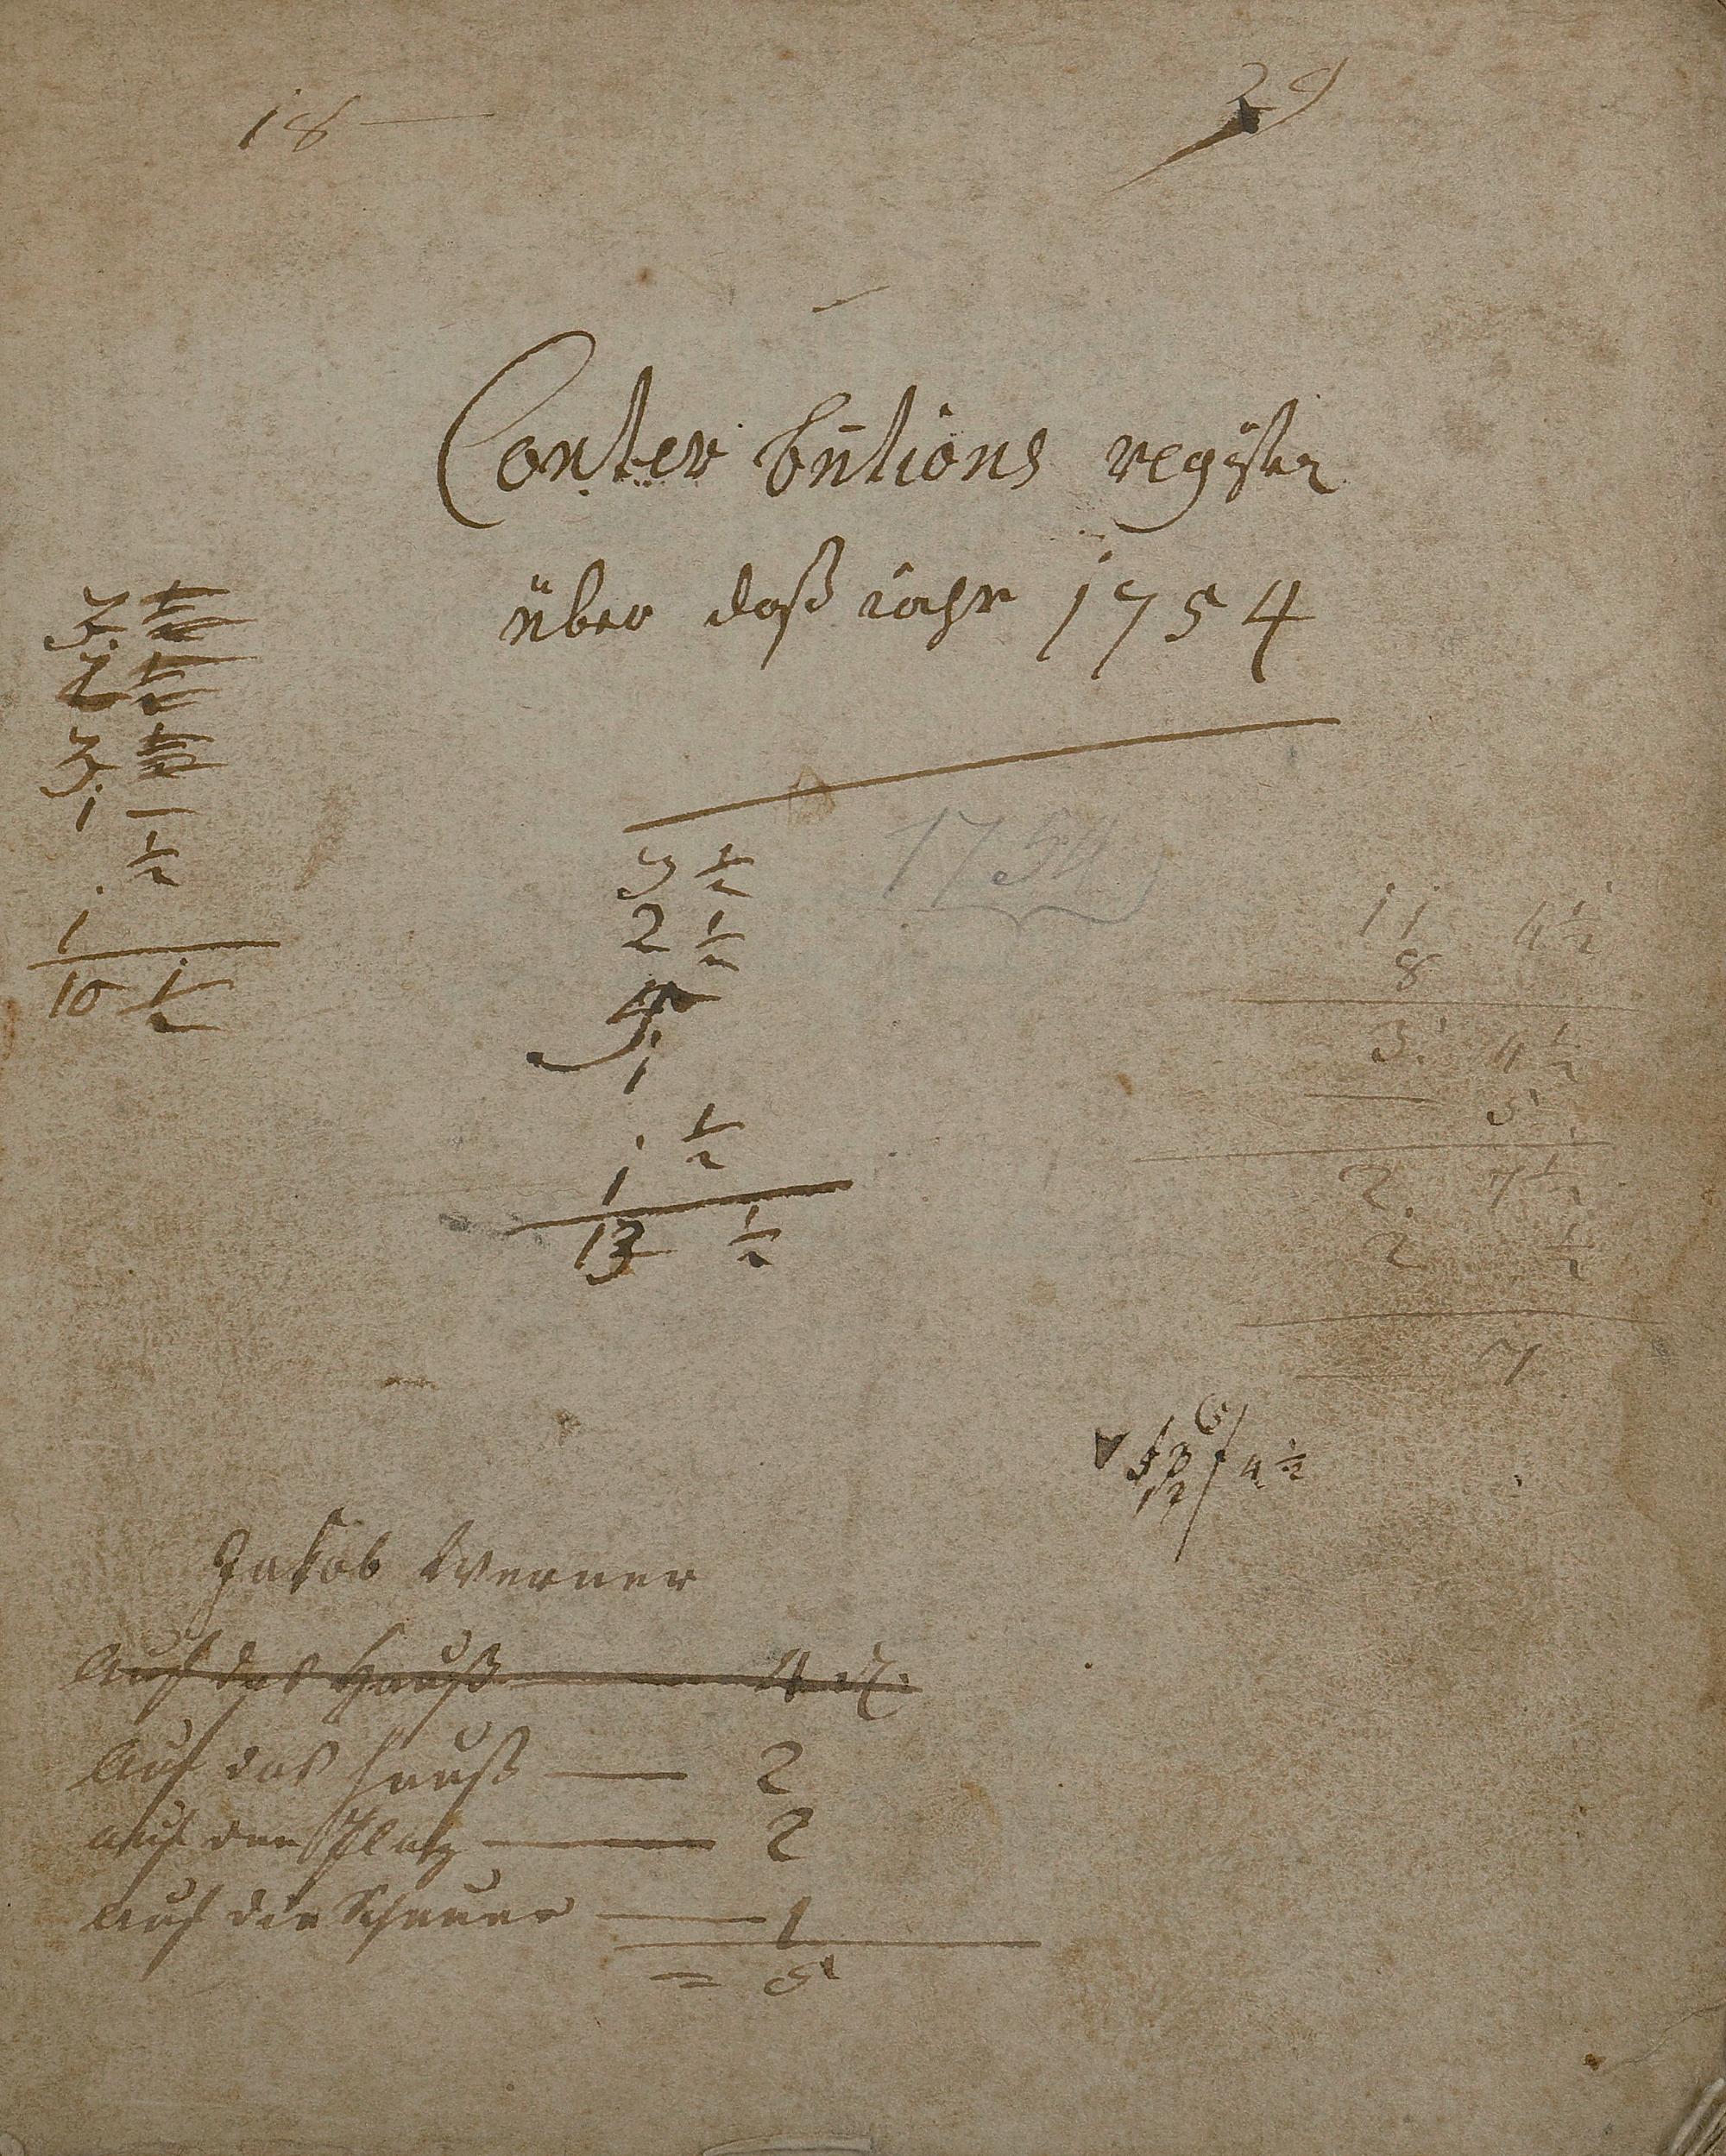 18 —
29
Conter būtions register
über daß iahr 1754
3 ½
2 ½
3 ½
1 —
. ½
1
10 ½
1754
3 ½
2 ½
4
1
. ½
1
13 ½
11 4 ½
8
3. 4 ½
— 5
2. 7 ½
2 ½
— 7
4 ½
Jakob Werner
Auf das Hauß — 4 x.
Auf das Hauß — 2
auf den Platz — 2
auf die Scheuer — 1
= 5